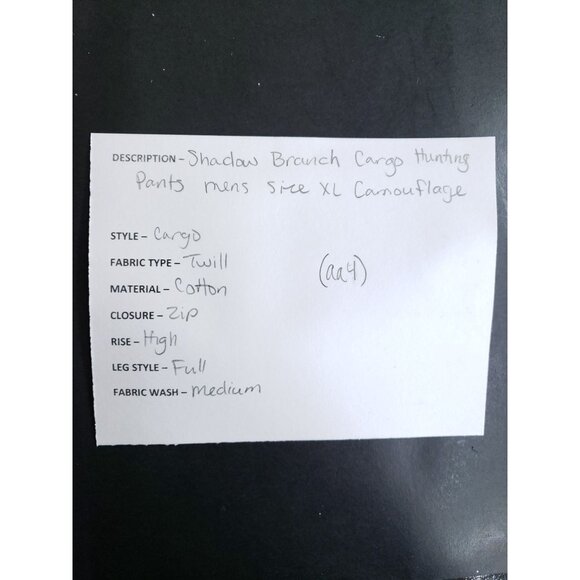 DESCRIPTION - Shadow Branch Cargo Hunting
Pants mens size XL Camouflage
STYLE - Cargo
FABRIC TYPE - Twill
(aa4)
MATERIAL - Cotton
CLOSURE - Zip
RISE - High
LEG STYLE - Full
FABRIC WASH - medium